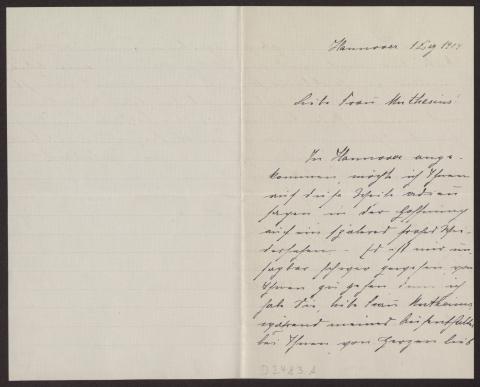 Hannover 1 Dez 1914
Liebe Frau Muthesius!
In Hannover ange-
kommen, möchte ich Ihnen
auf diese Weise adieu
sagen in der Hoffnung
auf ein späteres frohes Wie-
dersehen. Es ist mir un-
sagbar schwer gegangen von
Ihnen zu gehen denn ich
habe Sie, liebe Frau Muthesius
während meines Aufenthaltes
bei Ihnen von Herzen lieb
D 2483 a